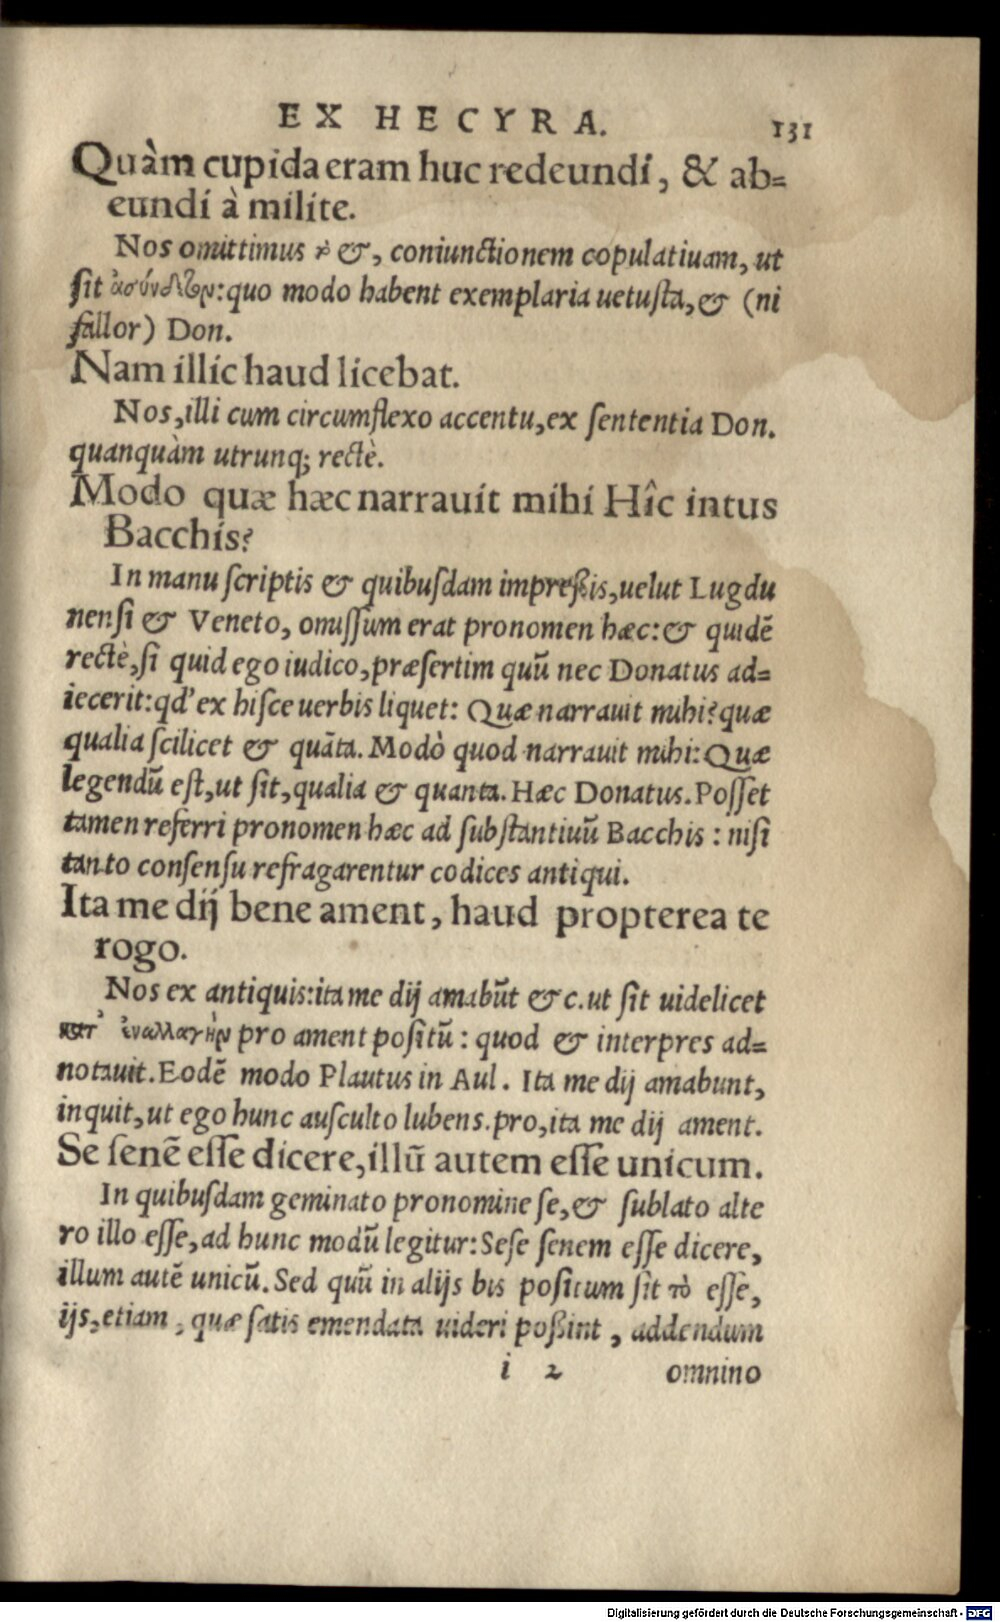 EX HECYRA. 131
Quàm cupida eram huc redeundi, & ab=
eundi à milite.
Nos omittimus τὸ &, coniunctionem copulatiuam, ut
ſit ἀσύνδετον: quo modo habent exemplaria uetuſta, & (ni
fallor) Don.
Nam illic haud licebat.
Nos, illi cum circumflexo accentu, ex ſententia Don.
quanquàm utrunq; rectè.
Modo quæ hæc narrauit mihi Hîc intus
Bacchis?
In manu ſcriptis & quibuſdam impreßis, uelut Lugdu
nenſi & Veneto, omiſſum erat pronomen hæc: & quidẽ
rectè, ſi quid ego iudico, præſertim quũ nec Donatus ad=
iecerit: qd' ex hiſce uerbis liquet: Quæ narrauit mihi? quæ
qualia ſcilicet & quãta. Modò quod narrauit mihi: Quæ
legendũ eſt, ut ſit, qualia & quanta. Hæc Donatus. Poſſet
tamen referri pronomen hæc ad ſubſtantiuũ Bacchis : niſi
tanto conſenſu refragarentur codices antiqui.
Ita me dij bene ament, haud propterea te
rogo.
Nos ex antiquis: ita me dij amabũt &c. ut ſit uidelicet
κατ' ἐναλλαγὴν pro ament poſitũ : quod & interpres ad=
notauit. Eodẽ modo Plautus in Aul. Ita me dij amabunt,
inquit, ut ego hunc auſculto lubens. pro, ita me dij ament.
Se ſenẽ eſſe dicere, illũ autem eſſe unicum.
In quibuſdam geminato pronomine ſe, & ſublato alte
ro illo eſſe, ad hunc modũ legitur: Seſe ſenem eſſe dicere,
illum autẽ unicũ. Sed quũ in alijs bis poſitum ſit τὸ eſſe,
ijs, etiam, quæ ſatis emendata uideri poßint, addendum
i 2 omnino
Digitalisierung gefördert durch die Deutsche Forschungsgemeinschaft - DFG